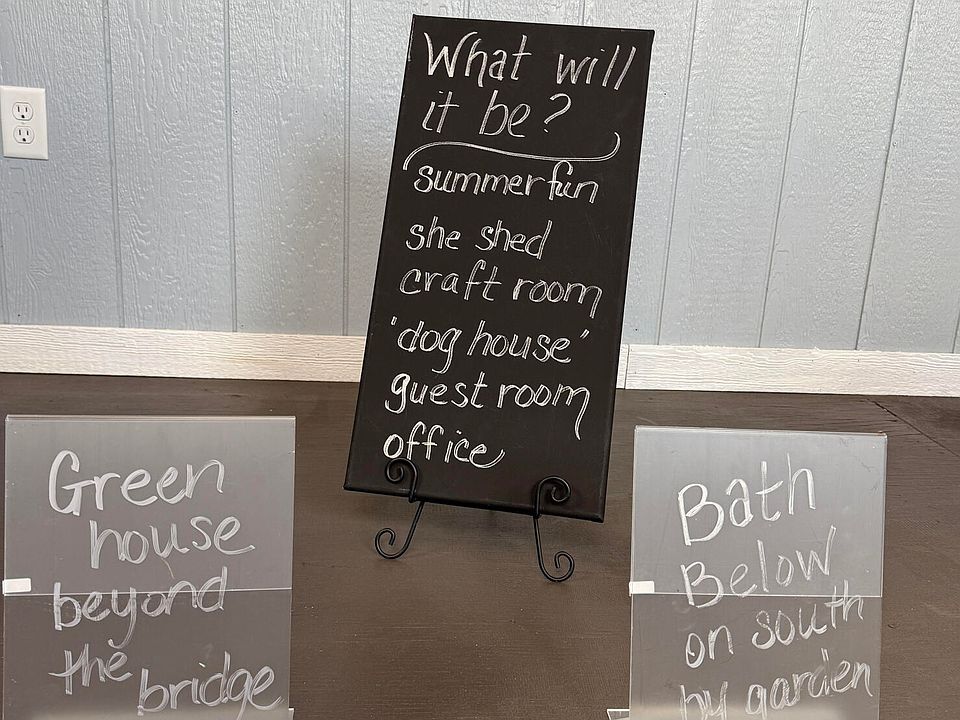 What will
it be?
summer fun
she shed
craft room
"dog house"
guest room
office
Green
house
beyond
the bridge
Bath
Below
on south
by garden